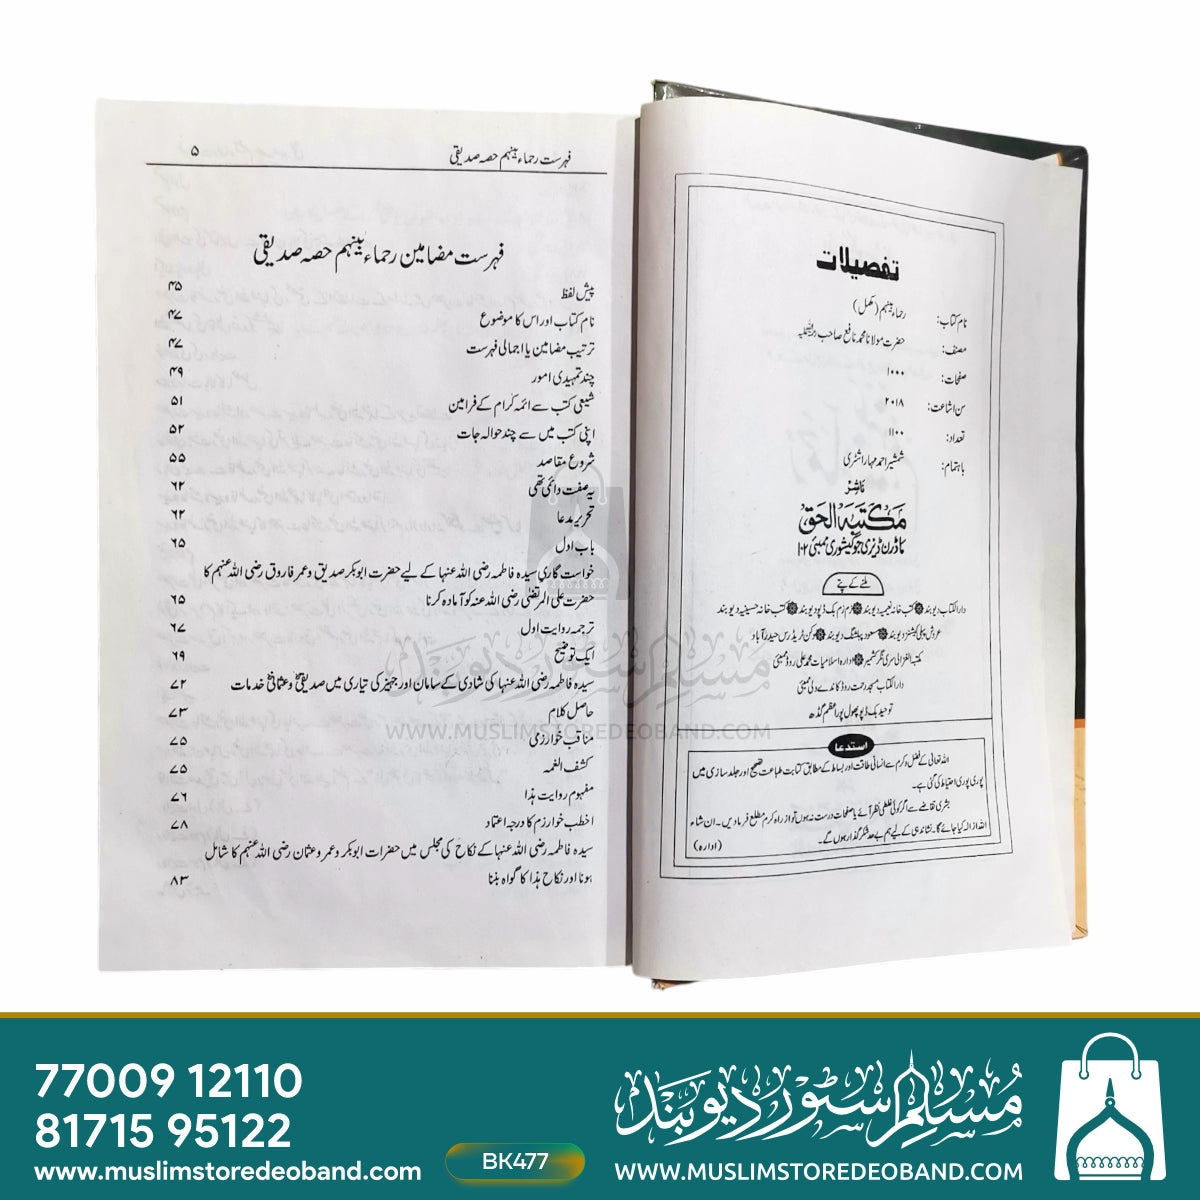 تفصیلات
نام کتاب: رحماء بینہم (مکمل)
مصنف: حضرت مولانا محمد نافع صاحب
صفحات: ۱۰۰۰
سن اشاعت: ۲۰۱۸
تعداد: ۱۱۰۰
باہتمام: شمشیر احمد مہاراشٹری
ناشر
مکتبہ الحق
ماڈرن ڈیری جوگیشوری ممبئی ۱۰۲
ملنے کے پتے
دار الکتاب دیوبند کتب خانہ نعیمیہ دیوبند زم زم بک ڈپو دیوبند کتب خانہ حسینیہ دیوبند
عرش پبلی کیشنز دیوبند مسعود پبلشنگ دیوبند دکن ٹریڈرس حیدرآباد
مکتبہ الغزالی سری نگر کشمیر ادارہ اسلامیات محمد علی روڈ ممبئی
دار الکتاب مسجد رحمت روڈ کاندے ولی ممبئی
توحید بک ڈپو پھول پور اعظم گڈھ
استدعا
اللہ تعالی کے فضل و کرم سے انسانی طاقت اور بساط کے مطابق کتابت طباعت تصحیح اور جلد سازی میں
پوری پوری احتیاط کی گئی ہے۔
بشری تقاضے سے اگر کوئی غلطی نظر آئے یا صفحات درست نہ ہوں تو از راہ کرم مطلع فرمادیں۔ ان شاء
اللہ ازالہ کیا جائے گا۔ نشاندہی کے لیے ہم بے حد شکر گذار ہوں گے۔ (ادارہ)
فہرست رحماء بینہم حصہ صدیقی ۵
فہرست مضامین رحماء بینہم حصہ صدیقی
پیش لفظ ۴۵
نام کتاب اور اس کا موضوع ۴۷
ترتیب مضامین یا اجمالی فہرست ۴۷
چند تمہیدی امور ۴۹
شیعی کتب سے ائمہ کرام کے فرامین ۵۱
اپنی کتب میں سے چند حوالہ جات ۵۲
شروع مقاصد ۵۵
یہ صفت دائمی تھی ۶۲
تحریر مدعا ۶۲
باب اول ۶۵
خواست گاری سیدہ فاطمہ رضی اللہ عنہا کے لیے حضرت ابوبکر صدیق و عمر فاروق رضی اللہ عنہم کا
حضرت علی المرتضیٰ رضی اللہ عنہ کو آمادہ کرنا ۶۵
ترجمہ روایت اول ۶۷
ایک توضیح ۶۹
سیدہ فاطمہ رضی اللہ عنہا کی شادی کے سامان اور جہیز کی تیاری میں صدیقیؓ و عثمانیؓ خدمات ۷۲
حاصل کلام ۷۳
مناقب خوارزمی ۷۵
کشف الغمہ ۷۵
مفہوم روایت ہذا ۷۶
اخطب خوارزم کا درجہ اعتماد ۷۸
سیدہ فاطمہ رضی اللہ عنہا کے نکاح کی مجلس میں حضرات ابوبکر و عمر و عثمان رضی اللہ عنہم کا شامل
ہونا اور نکاح ہذا کا گواہ بننا ۸۳
مسلم سٹور دیوبند
WWW.MUSLIMSTOREDEOBAND.COM
77009 12110
81715 95122
www.muslimstoredeoband.com
BK477
مسلم سٹور دیوبند
WWW.MUSLIMSTOREDEOBAND.COM